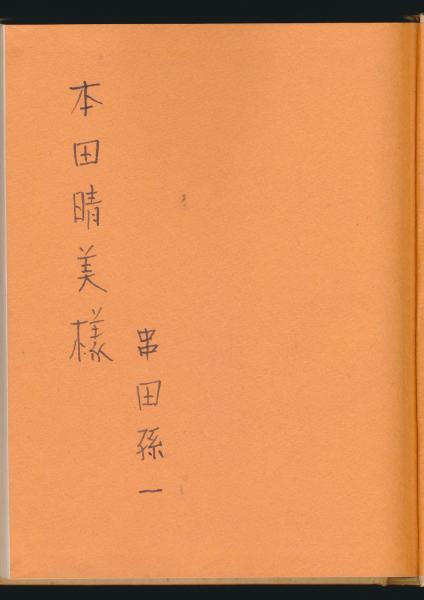 本田晴美様
串田孫一